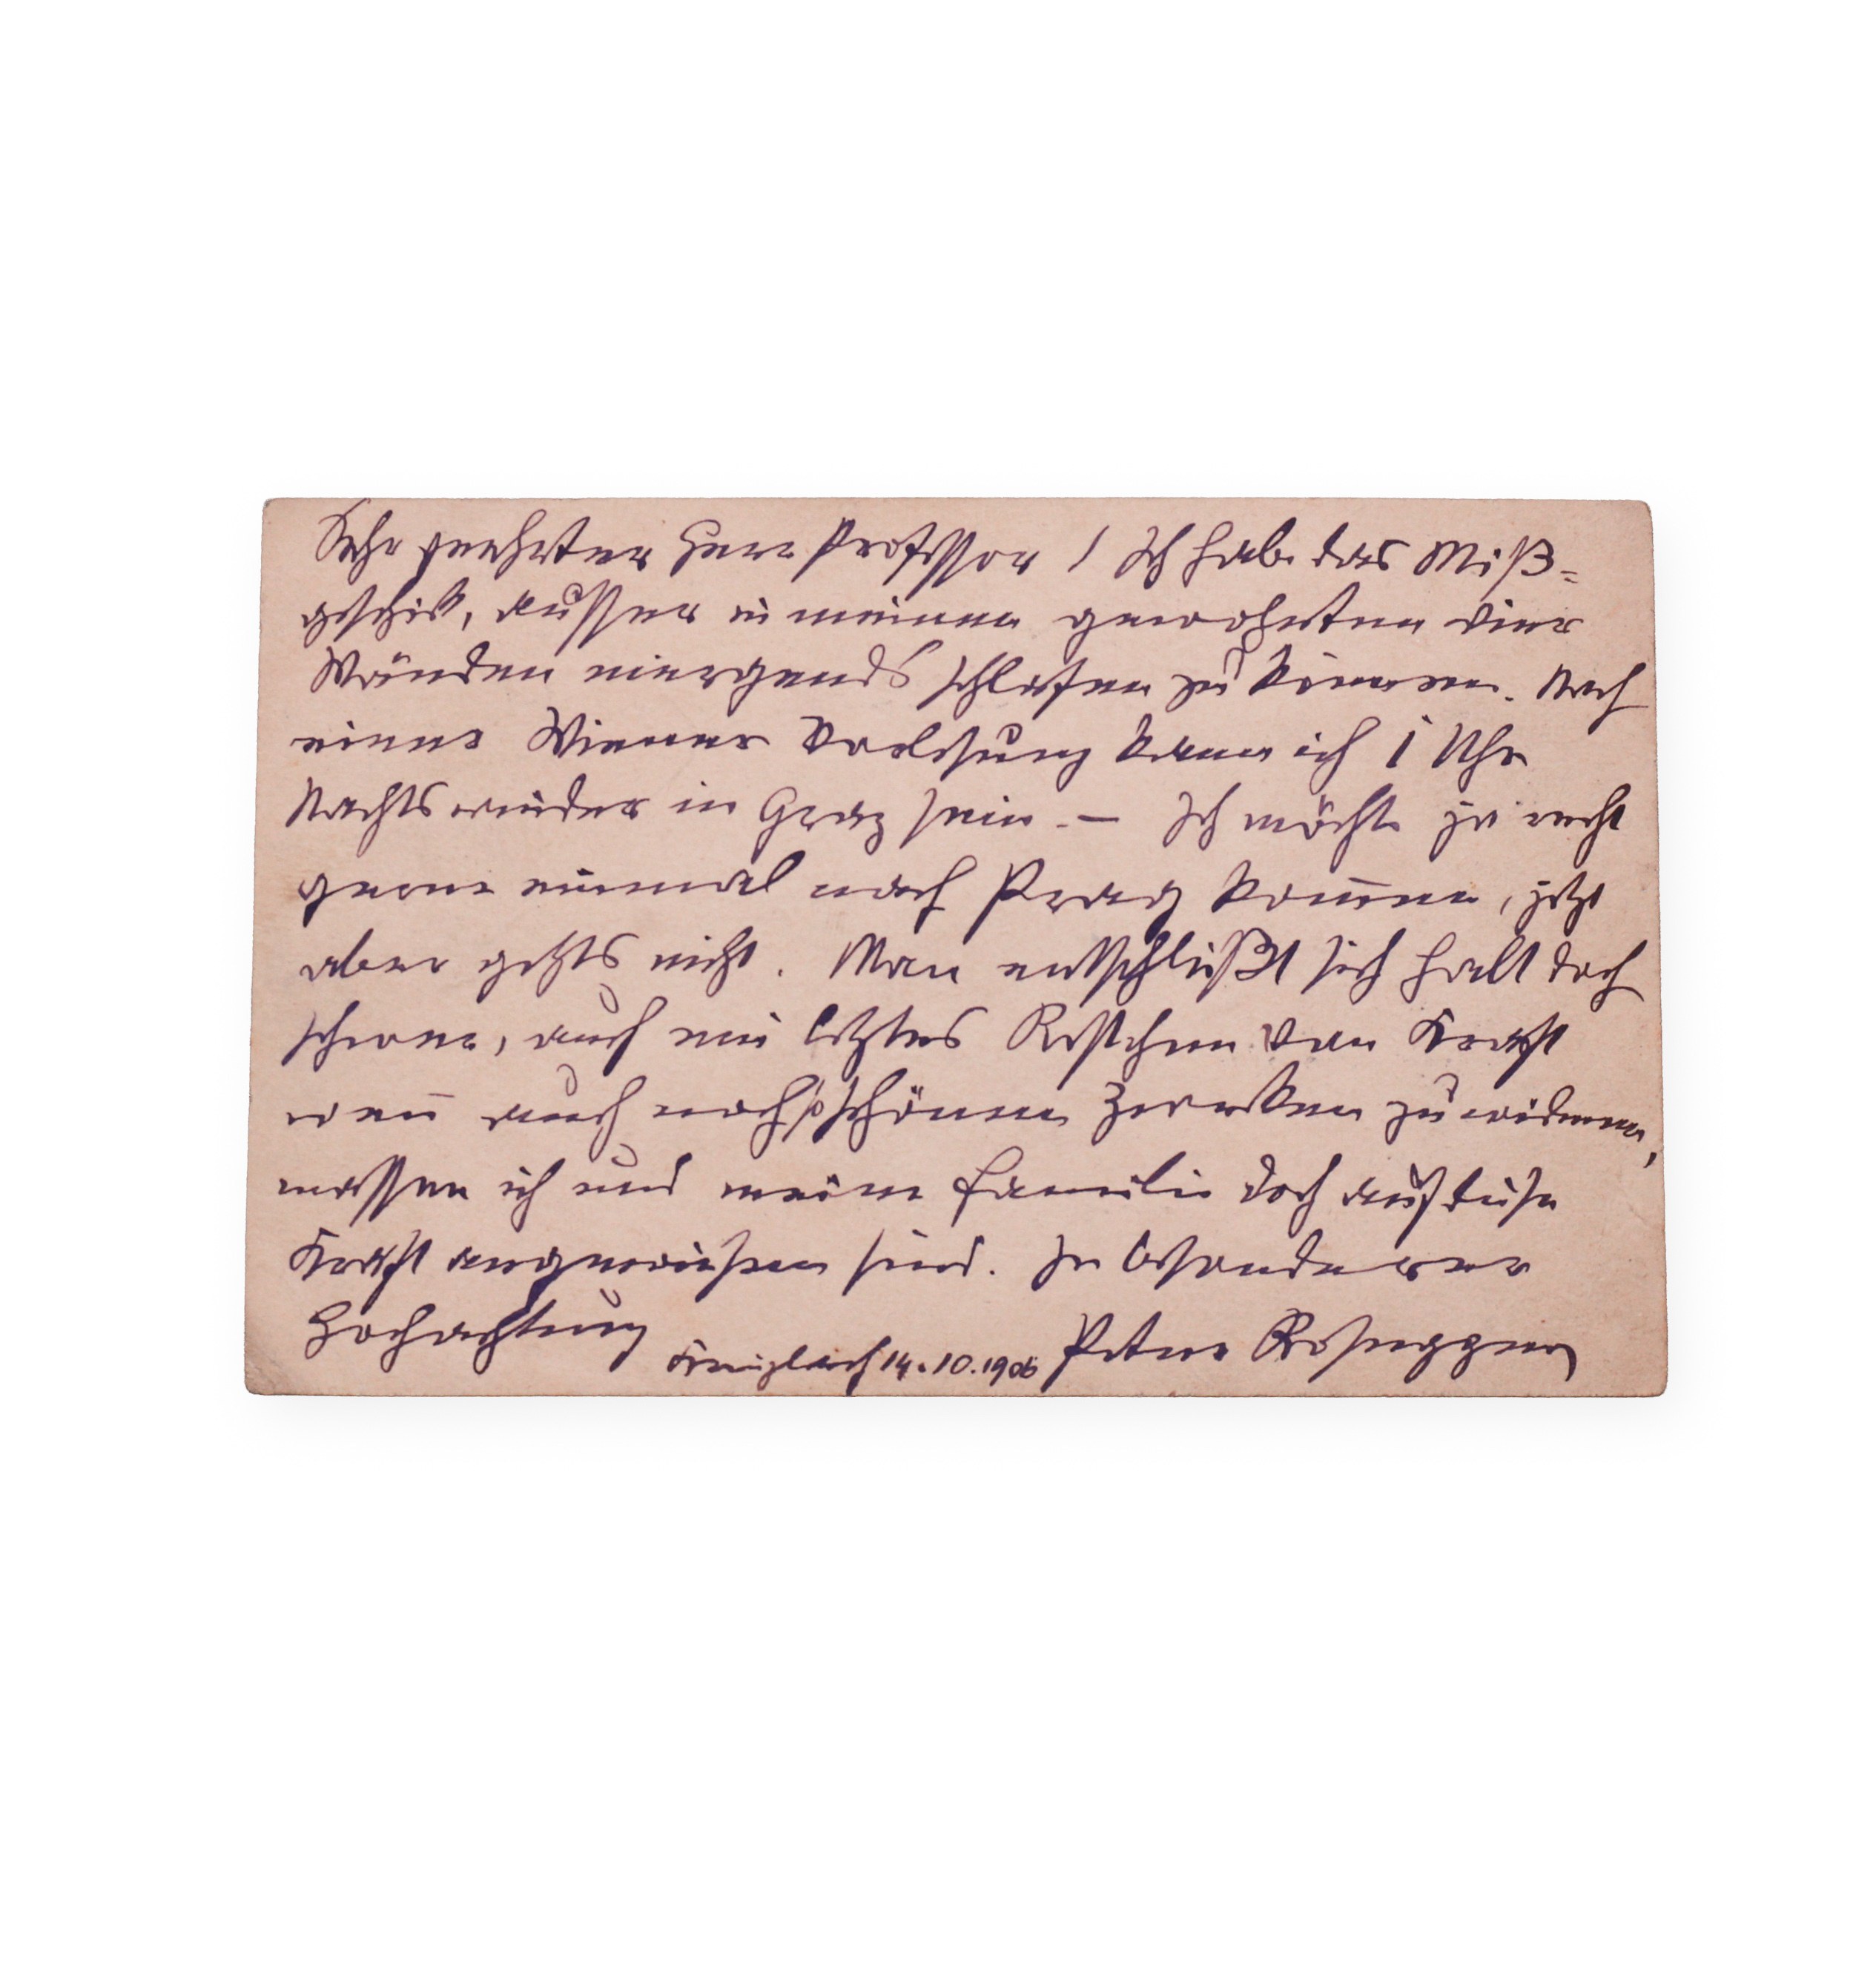 Sehr geehrter Herr Professor! Ich habe das Miß-
geschik, ausser in meinen gewohnten vier
Wänden niergends schlafen zu können. Nach
einer Wiener Vorlesung kann ich 1 Uhr
Nachts wieder in Graz sein. — Ich möchte ja recht
gerne einmal nach Prag kom̅en, jetzt
aber gehts nicht. Man entschließt sich halt doch
schwer, auch ein letztes Restchen von Kraft
wen̅ auch noch so schönen Zwecken zu widmen,
massen ich und meine Familie doch auf diese
Kraft angewiesen sind. In besonderer
Hochachtung
Krieglach 14.10.1906 Peter Rosegger